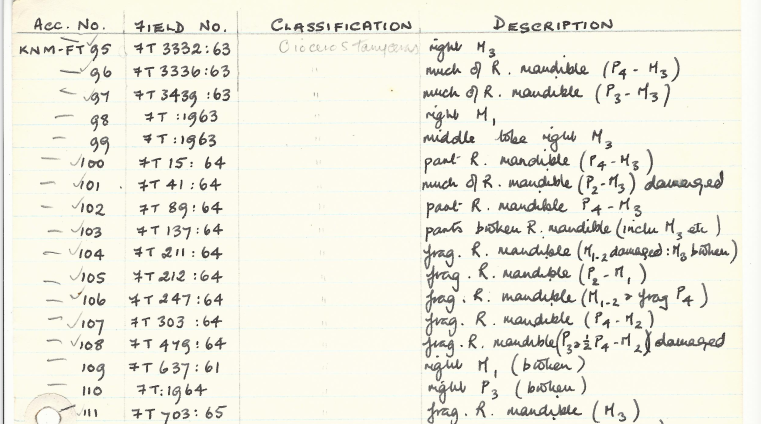 ACC. NO. FIELD NO. CLASSIFICATION DESCRIPTION
KNM-FT 95 FT 3332:63 right M3
96 FT 3336:63 " much of R. mandible (P4-M3)
97 FT 3439:63 " much of R. mandible (P3-M3)
98 FT :1963 " right M1
99 FT :1963 " middle lobe right M3
100 FT 15:64 " part R. mandible (P4-M3)
101 FT 41:64 " much of R. mandible (P2-M3) damaged
102 FT 89:64 " part R. mandible P4-M3
103 FT 137:64 " parts broken R. mandible (inclu M3 etc)
104 FT 211:64 " frag. R. mandible (M1-2 damaged: M3 broken)
105 FT 212:64 " frag. R. mandible (P2-M1)
106 FT 247:64 " frag. R. mandible (M1-2 & frag P4)
107 FT 303:64 " frag. R. mandible (P4-M2)
108 FT 479:64 " frag. R. mandible (P3 & ½ P4-M2) damaged
109 FT 637:61 right M1 (broken)
110 FT:1964 right P3 (broken)
111 FT 703:65 frag. R. mandible (M3)